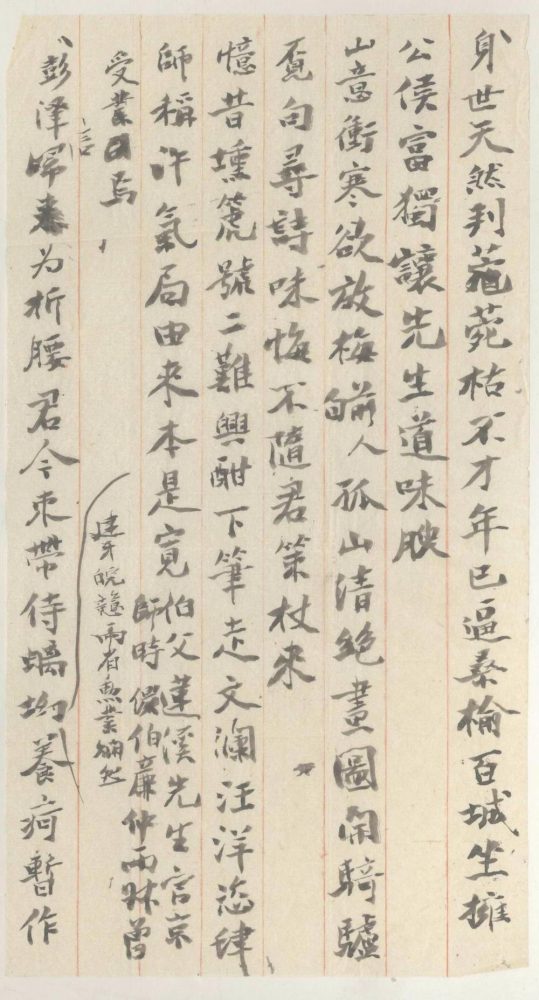 身世天然判菀枯不才年已逼桑榆百城坐擁
公侯富獨讓先生道味腴
山意衝寒欲放梅前人孤山清絶畫圖開騎驢
覓句尋詩味悔不隨君策杖來
憶昔壎箎號二難興酣下筆走文瀾汪洋恣肆
師稱許氣局由来本是寬伯父蓮溪先生官京
師時偕伯廉仲雨昧曾
受業焉
彭澤歸来为折腰君今束帶侍螭坳養疴暫作